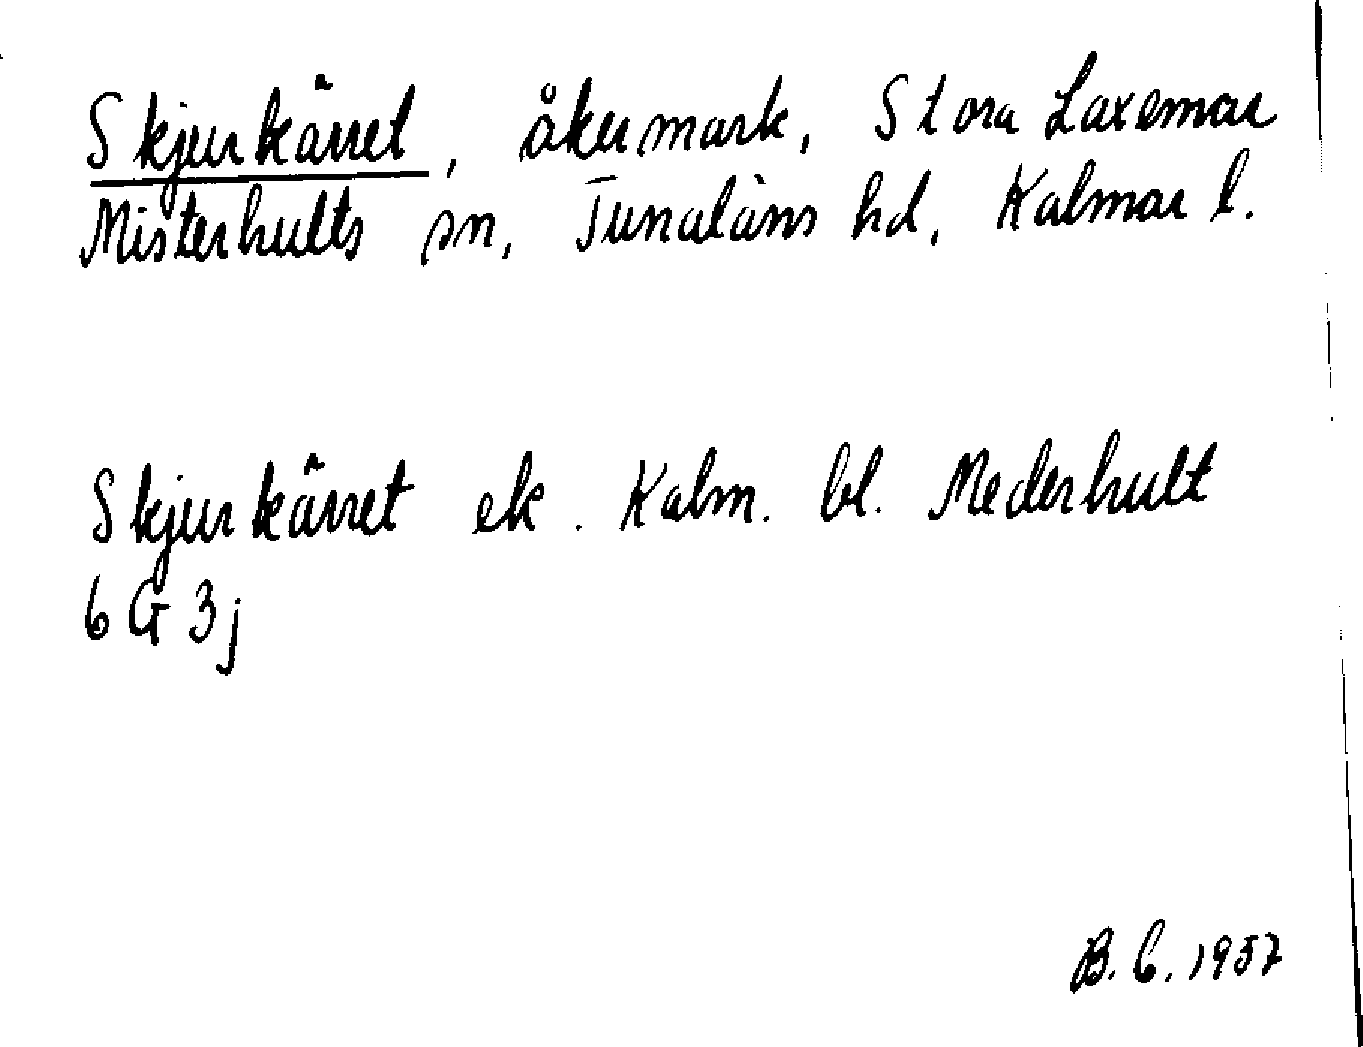 Skjurkärret, åkermark, Stora Laxemar
Misterhults sn, Tunaläns hd, Kalmar l.
Skjurkärret ek. Kalm. bl. Mederhult
6 G 3j
B. C. 1957